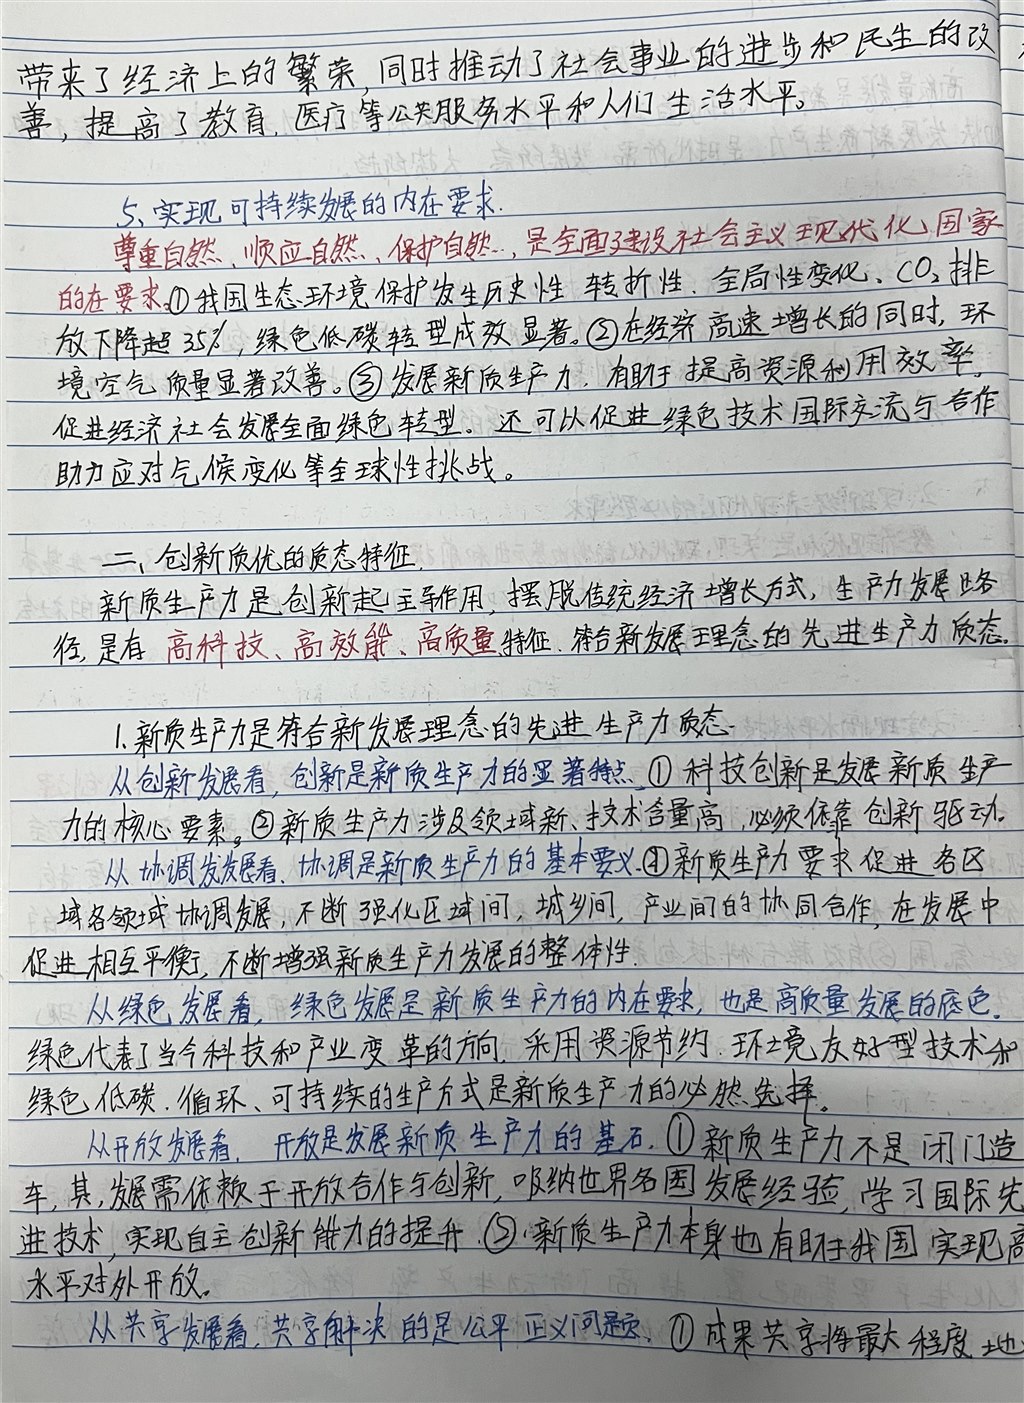 带来了经济上的繁荣,同时推动了社会事业的进步和民生的改
善，提高了教育、医疗等公共服务水平和人们生活水平。
5、实现可持续发展的内在要求.
尊重自然、顺应自然、保护自然,是全面建设社会主义现代化国家
的在要求.①我国生态环境保护发生历史性 转折性、全局性变化、CO₂排
放下降超35%,绿色低碳转型成效显著。②在经济高速增长的同时,环
境空气质量显著改善。③发展新质生产力,有助于提高资源利用效率。
促进经济社会发展全面绿色转型。还可以促进绿色技术国际交流与合作
助力应对气候变化等全球性挑战。
二、创新质优的质态特征.
新质生产力是创新起主导作用,摆脱传统经济增长方式,生产力发展路
径,是有 高科技、高效能、高质量特征、符合新发展理念的先进生产力质态.
1.新质生产力是符合新发展理念的先进生产力质态.
从创新发展看,创新是新质生产力的显著特点.①科技创新是发展新质生产
力的核心要素。②新质生产力涉及领域新、技术含量高,必须依靠创新驱动.
从协调发发展看、协调是新质生产力的基本要义.②新质生产力要求促进各区
域各领域协调发展,不断强化区域间,城乡间,产业间的协同合作,在发展中
促进相互平衡,不断增强新质生产力发展的整体性.
从绿色发展看,绿色发展是新质生产力的内在要求,也是高质量发展的底色.
绿色代表了当今科技和产业变革的方向,采用资源节约、环境友好型技术和
绿色低碳、循环、可持续的生产方式是新质生产力的必然选择。
从开放发展看,开放是发展新质生产力的基石.①新质生产力不是闭门造
车,其,发展需依赖于开放合作与创新,吸纳世界各国发展经验,学习国际先
进技术,实现自主创新能力的提升.②新质生产力本身也有助于我国实现高
水平对外开放。
从共享发展看,共享解决的是公平正义问题.①成果共享将最大程度地